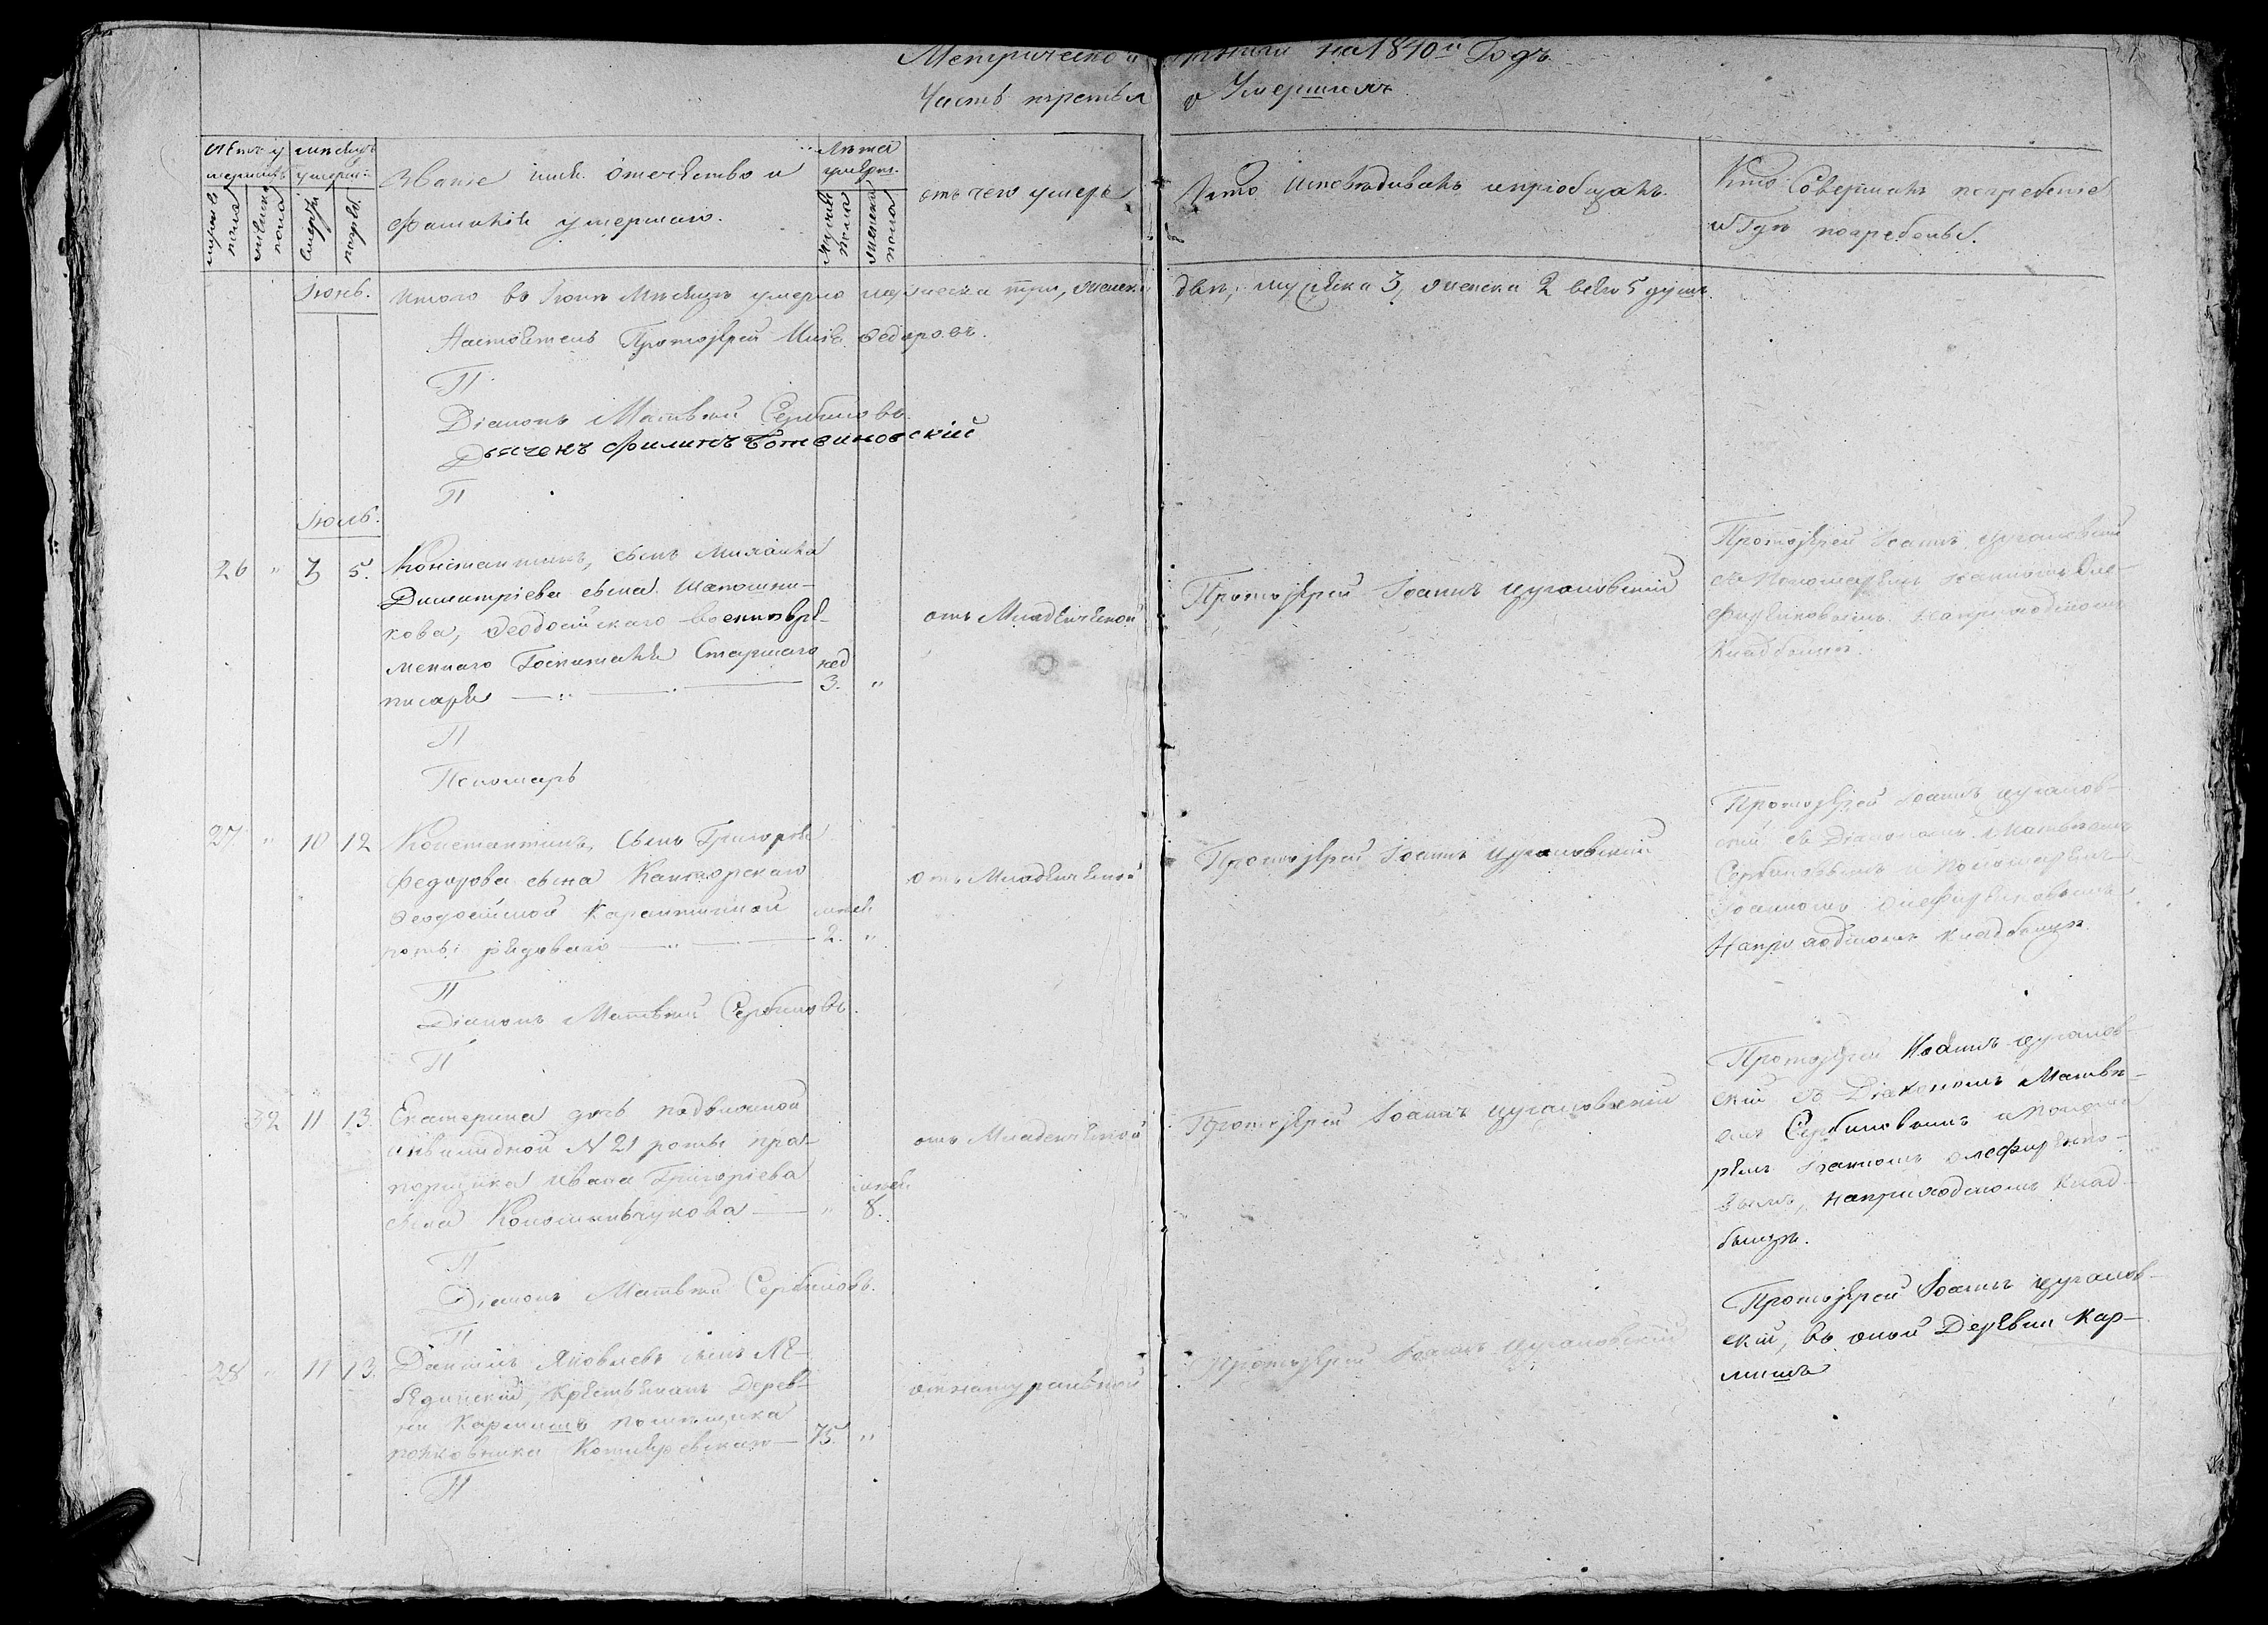 Метрической книги на 1840й Годъ
Часть третья о Умершихъ
Счетъ умершихъ
мужеска пола
женска пола
мѣсяцъ умерш:
Смерти
погреб.
Званіе имя. отечество и
фамилія умершаго.
Лѣта умерш.
Мужеска пола
женска пола
отъ чего умеръ
Кто исповѣдывалъ и пріобщалъ.
Кто Совершалъ погребеніе
и Гдѣ погребены.
Іюнь. Итого въ Іюнѣ Мѣсяцѣ умерло мужеска три, женска двѣ, мужеска 3, женска 2 всего 5 душъ.
Настоятель Протоіерей Федоровъ.
П
Діаконъ Матвей Сербиновъ
Дьячекъ Филипъ Ботвиновскій
П
Іюль.
26 " 3 5. Константинъ, сынъ Михаила
Димитріева сына Шапошни-
кова, Феодосійскаго военновре-
меннаго Госпиталя Старшаго
писаря
нед
3. "
отъ Младенческой
Протоіерей Іоаннъ Цугановскій
Протоіерей Іоаннъ Цугановскій
съ Пономаремъ Іоанномъ Оле-
фиренковымъ. На приходскомъ
Кладбищѣ.
П
Пономарь
27 " 10 12 Константинъ, Сынъ Григорія
Федорова сына Канторскаго
Феодосійской Карантинной
роты рядоваго
мѣся.
2. "
отъ Младенческой
Протоіерей Іоаннъ Цугановскій
Протоіерей Іоаннъ Цуганов-
скій съ Діакономъ Матвеемъ
Сербиновымъ и Пономаремъ
Іоанномъ Олефиренковымъ
На приходскомъ кладбищѣ.
П
Діаконъ Матвей Сербиновъ.
П
32 11 13. Екатерина дочь подвижной
инвалидной N 21 роты пра-
порщика Ивана Григоріева
сына
" мѣся.
8.
отъ Младенческой
Протоіерей Іоаннъ Цугановскій
Протоіерей Іоаннъ Цуганов-
скій съ Діакономъ Матвѣ-
емъ Сербиновымъ и Понома-
ремъ Іоанномъ Олефиренко-
вымъ, на приходскомъ Клад-
бищѣ.
П
Діаконъ Матвей Сербиновъ.
П
28 " 11 13. Даніилъ Яковлевъ сынъ Ле-
бединскій, Крестьянинъ Дерев-
ни Кармишъ помѣщика
полковника Котляревскаго 75. "
отъ натуральной
Протоіерей Іоаннъ Цугановскій
Протоіерей Іоаннъ Цуганов-
скій, въ оной Деревни Кар-
мишъ
П